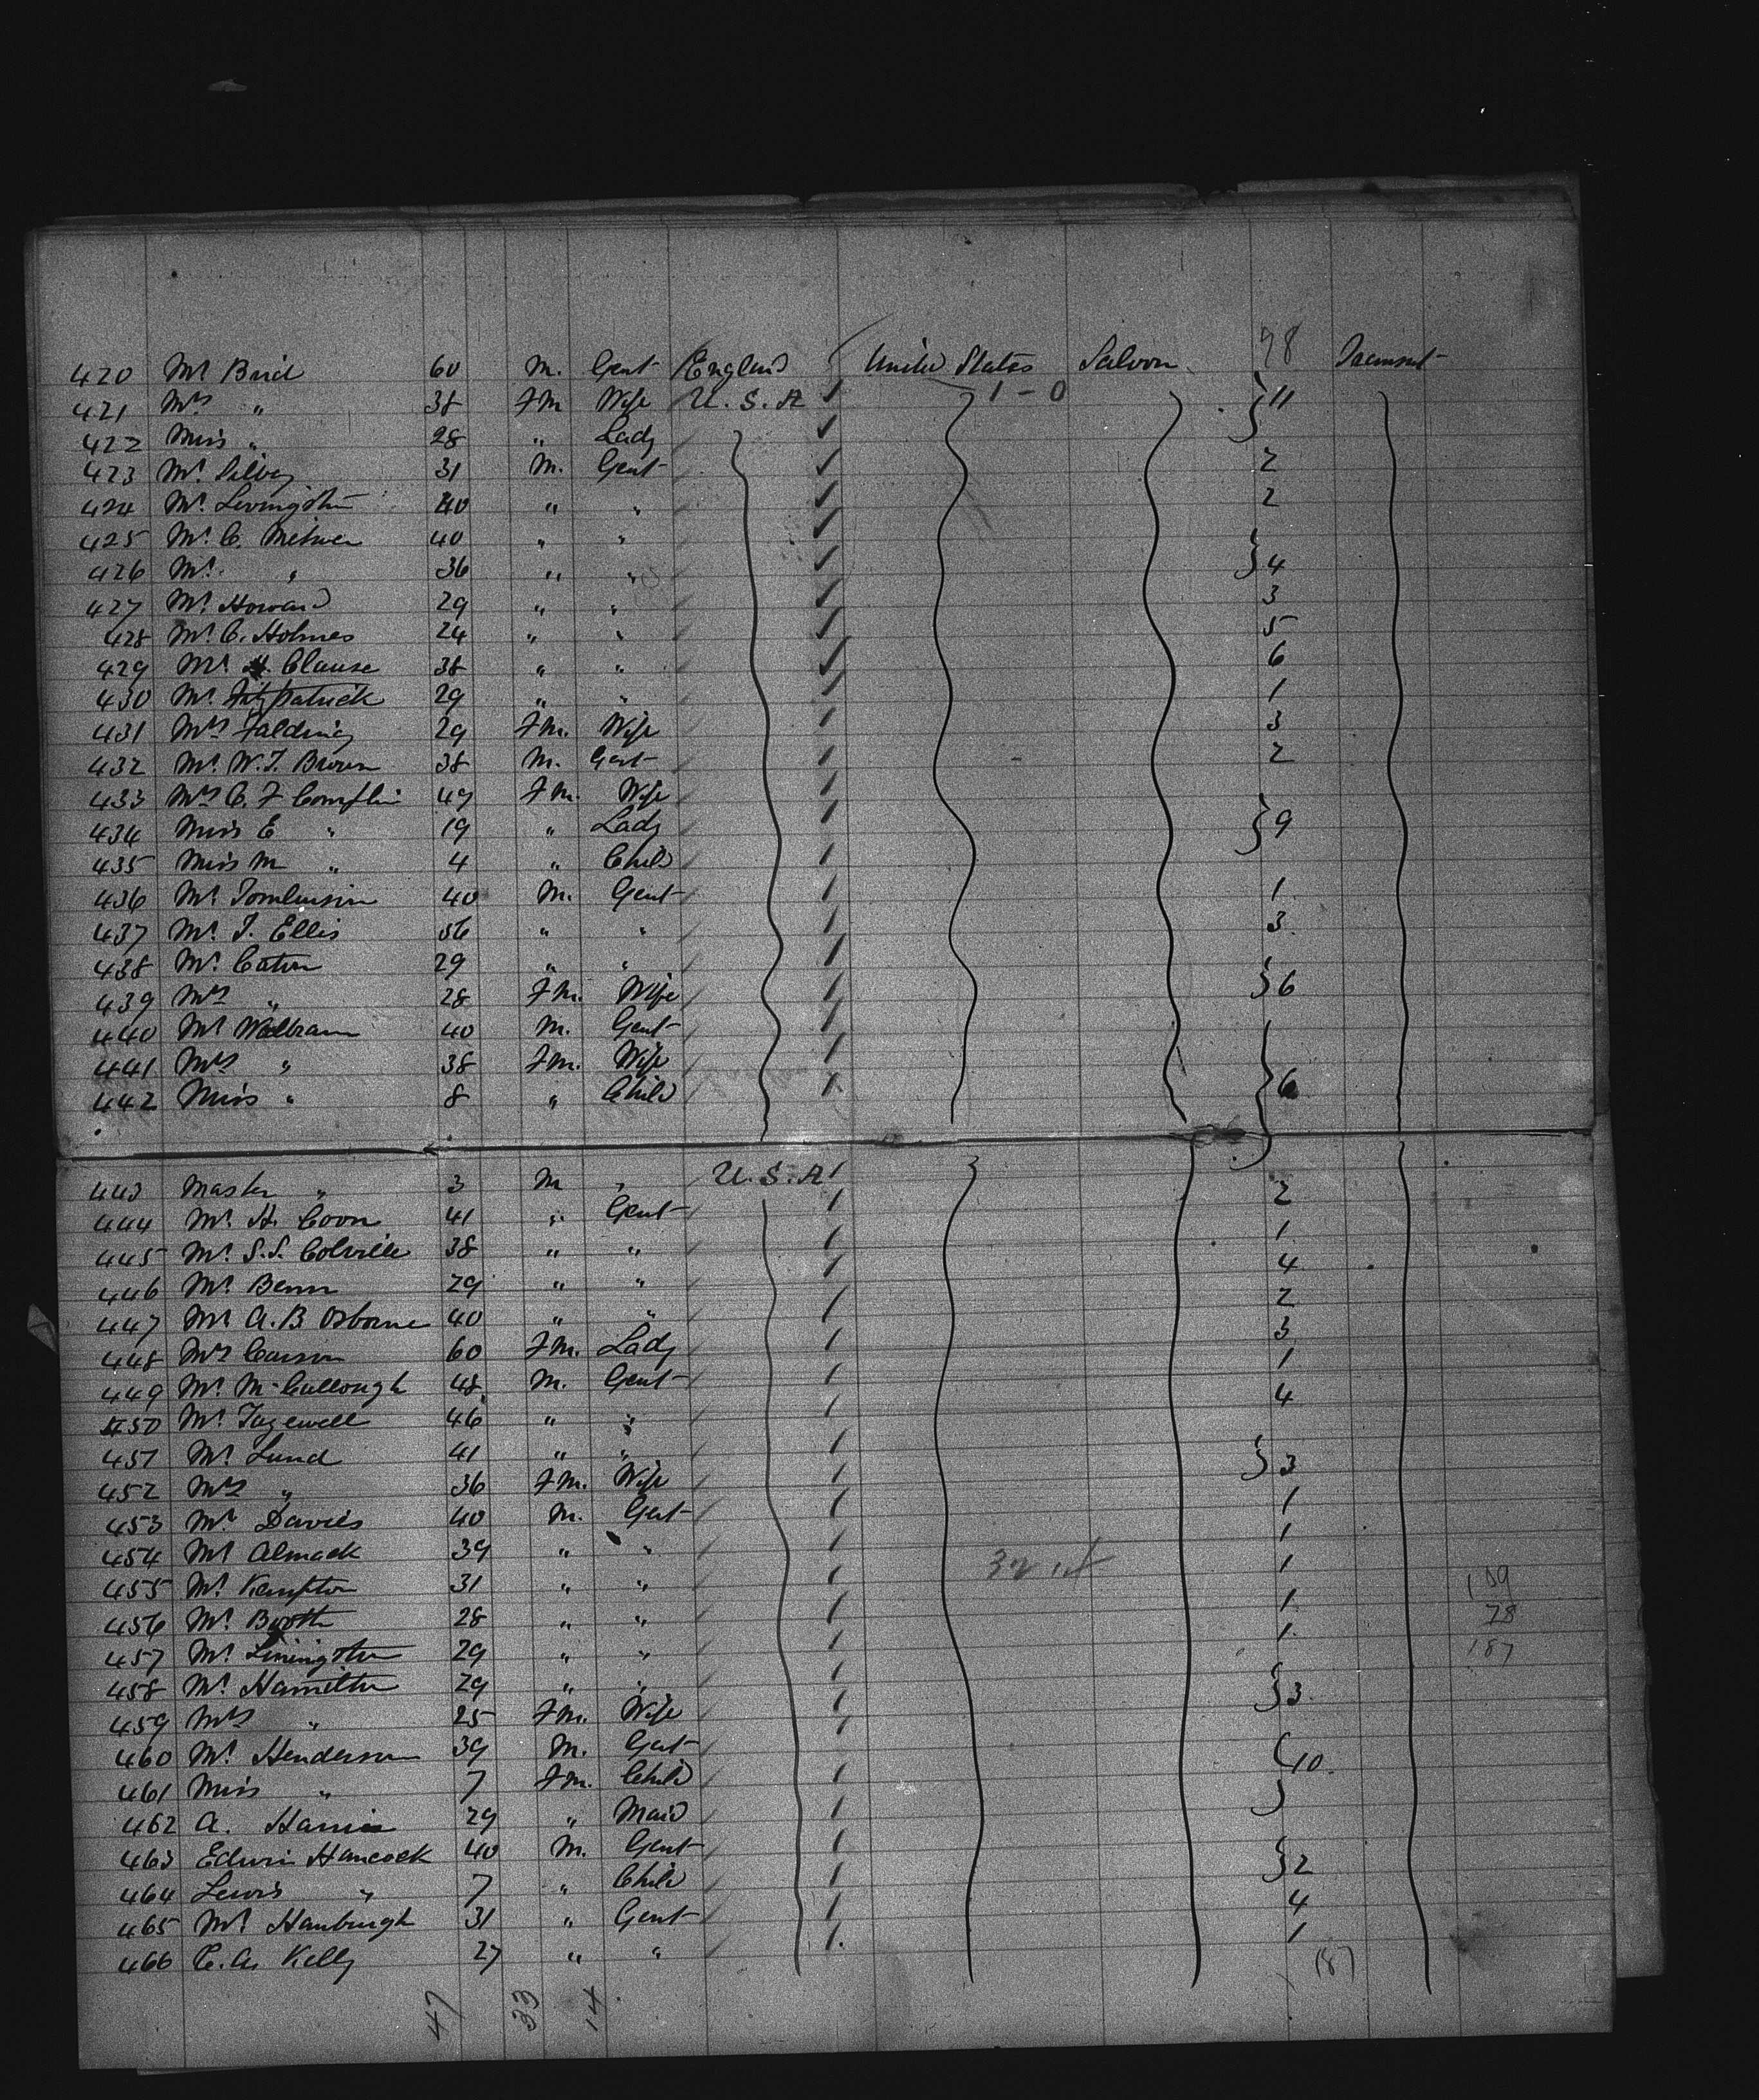 98
420 Mr Bird 60 M. Gent England United States Saloon Transit
421 Mrs " 38 FM Wife U.S.A 1-0 } 11
422 Miss " 28 " Lady
423 Mr Silvey 31 M. Gent 2
424 Mr Livingston 40 " " 2
425 Mr C. 40 " "
426 Mr. " 36 " " } 4
427 Mr Howard 29 " " 3
428 Mr C. Holmes 24 " " 5
429 Mr Clause 38 " " 6
430 Mr Fitzpatrick 29 " " 1
431 Mrs Falding 29 FM. Wife 3
432 Mr W.T. Brown 38 M. Gent 2
433 Mrs C. F Comflin 49 FM. Wife
434 Miss E " 19 " Lady } 9
435 Miss M " 4 " Child
436 Mr Tomlinson 40 M. Gent 1
437 Mr T. Ellis 56 " " 3
438 Mr Caton 29 " "
439 Mrs " 28 FM. Wife } 6
440 Mr Walbram 40 M. Gent
441 Mrs " 38 FM. Wife
442 Miss " 8 " Child } 6
443 Master " 3 M " U.S.A
444 Mr H. Coon 41 " Gent 2
445 Mr S.S. Colville 38 " " 1
446 Mr Benn 29 " " 4
447 Mr A.B Osborne 40 " " 2
448 Mrs Carson 60 FM. Lady 3
449 Mr McCullough 48 M. Gent 1
450 Mr Tazewell 46 " " 4
451 Mr Lund 41 " "
452 Mrs " 36 FM. Wife } 3
453 Mr Davies 40 M. Gent 1
454 Mr Almack 39 " " 1
455 Mr Kempton 31 " " 1
456 Mr Booth 28 " " 1
457 Mr Livingston 29 " " 1
458 Mr Hamilton 29 " "
459 Mrs " 25 FM. Wife } 3
460 Mr Henderson 39 M. Gent
461 Miss " 7 FM. Child } 10
462 A. Harris 29 " Maid
463 Edwin Hancock 40 M. Gent
464 Lewis " 7 " Child } 2
465 Mr Hanburgh 31 " Gent 4
466 C.A. Kelly 27 " " 1
109
78
187
(87)
47 33 14